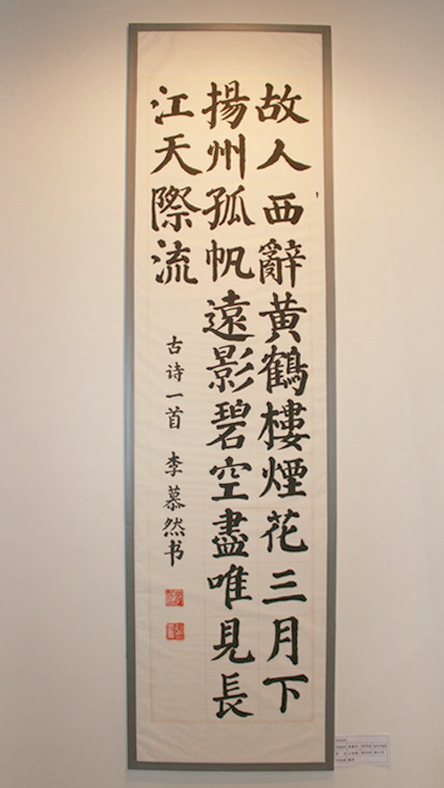 故人西辭黄鶴樓煙花三月下
揚州孤帆遠影碧空盡唯見長
江天際流
古诗一首 李慕然书